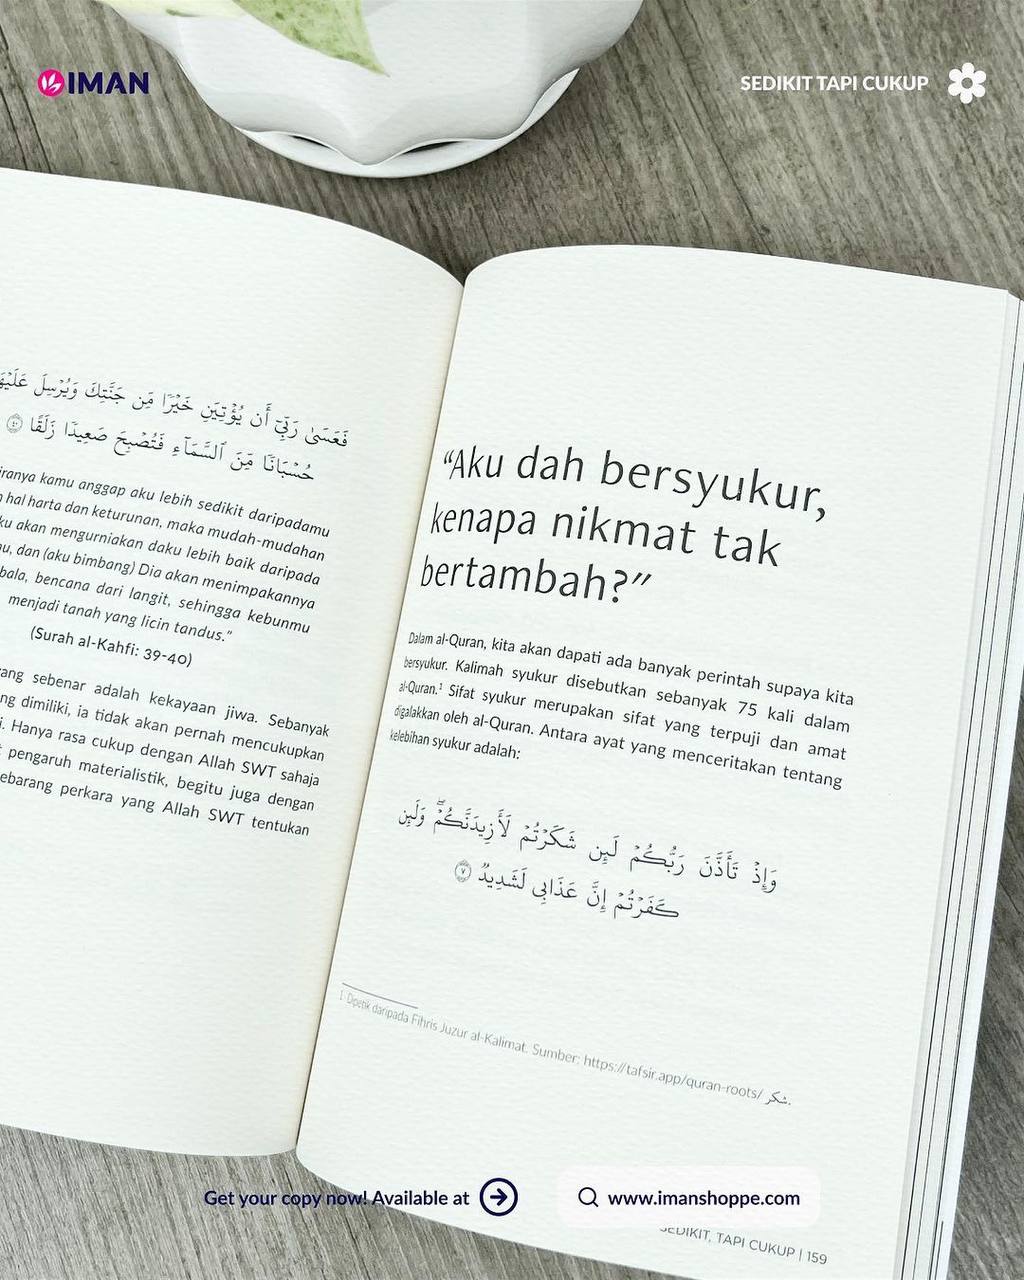 IMAN
SEDIKIT TAPI CUKUP
فَعَسَىٰ رَبِّيٓ أَن يُؤْتِيَنِ خَيْرًا مِّن جَنَّتِكَ وَيُرْسِلَ عَلَيْهَا
حُسْبَانًا مِّنَ ٱلسَّمَآءِ فَتُصْبِحَ صَعِيدًا زَلَقًا ٤٠
kamu anggap aku lebih sedikit daripadamu
hal harta dan keturunan, maka mudah-mudahan
akan mengurniakan daku lebih baik daripada
dan (aku bimbang) Dia akan menimpakannya
bala, bencana dari langit, sehingga kebunmu
menjadi tanah yang licin tandus.”
(Surah al-Kahfi: 39-40)
yang sebenar adalah kekayaan jiwa. Sebanyak
dimiliki, ia tidak akan pernah mencukupkan
Hanya rasa cukup dengan Allah SWT sahaja
pengaruh materialistik, begitu juga dengan
sebarang perkara yang Allah SWT tentukan
“Aku dah bersyukur,
kenapa nikmat tak
bertambah?”
Dalam al-Quran, kita akan dapati ada banyak perintah supaya kita
bersyukur. Kalimah syukur disebutkan sebanyak 75 kali dalam
al-Quran.¹ Sifat syukur merupakan sifat yang terpuji dan amat
digalakkan oleh al-Quran. Antara ayat yang menceritakan tentang
kelebihan syukur adalah:
وَإِذْ تَأَذَّنَ رَبُّكُمْ لَئِن شَكَرْتُمْ لَأَزِيدَنَّكُمْۖ وَلَئِن
كَفَرْتُمْ إِنَّ عَذَابِى لَشَدِيدٌ ٧
1 Dipetik daripada Fihris Juzur al-Kalimat. Sumber: https://tafsir.app/quran-roots/شكر.
Get your copy now! Available at
www.imanshoppe.com
SEDIKIT, TAPI CUKUP | 159